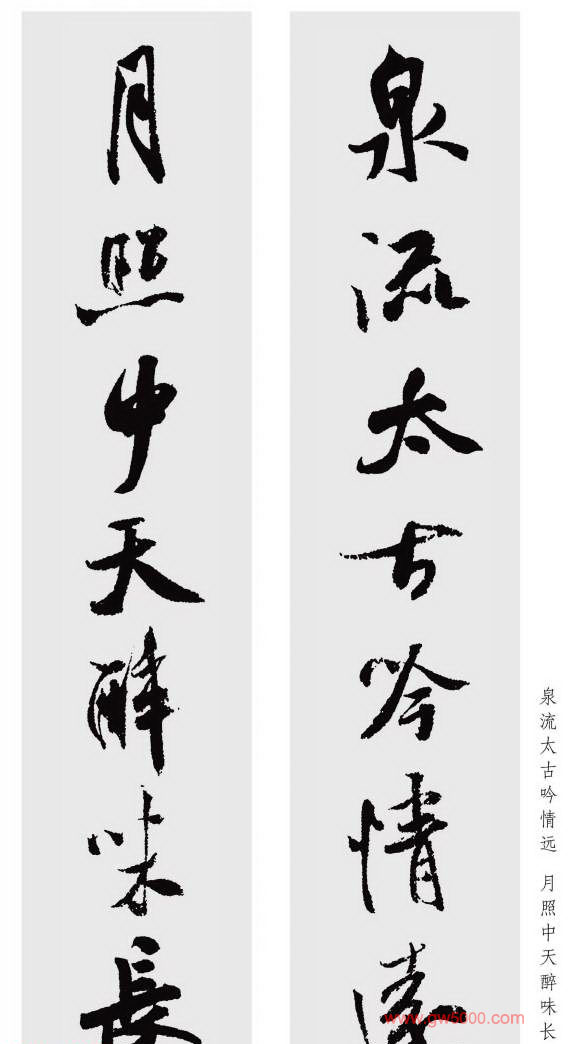 泉流太古吟情遠
月照中天醉味長
泉流太古吟情远 月照中天醉味长
www.gw5000.com